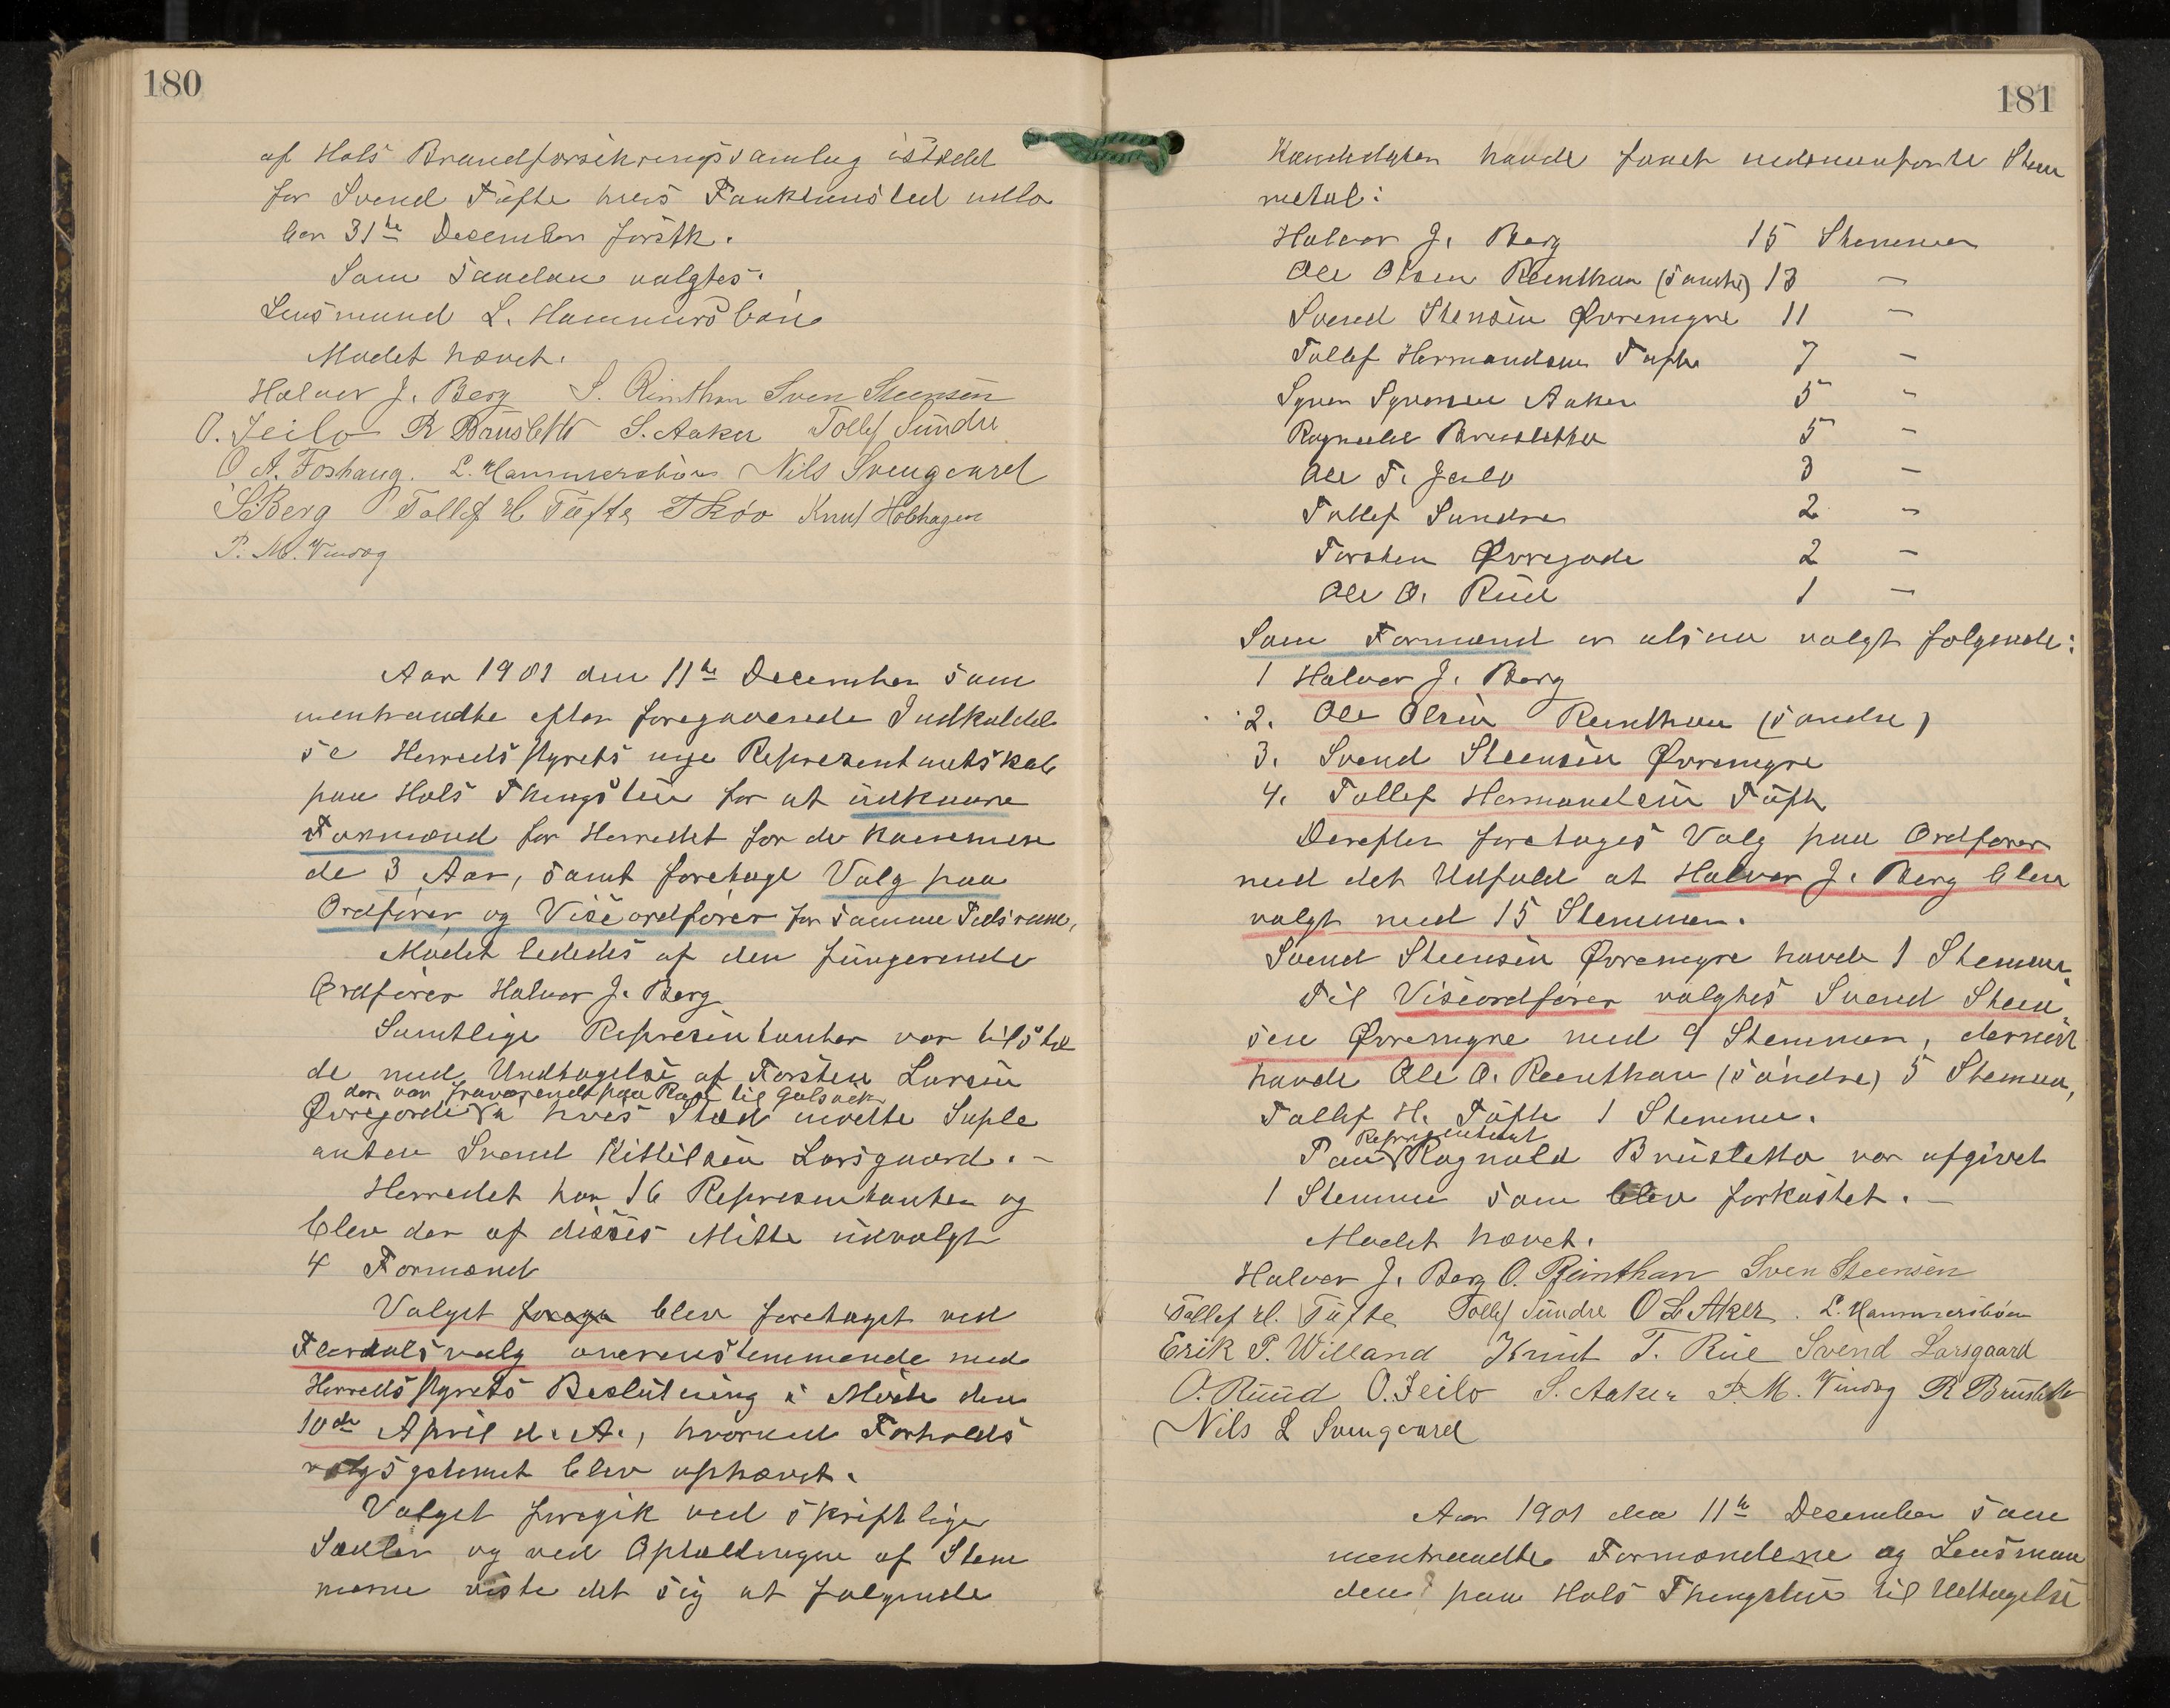 180
af Hols Brandforsikringsvamlag istedet
for Svend Tufte hvis Funktionsted udlø
ber 31te December førstk.
Som saadan valgtes.
Lensmand L. Hammersbøn
Mødet hævet.
Halvor J. Berg S. Rinthan Sven Steensen
O. Jeilo R Brusletto S. Aaker Tollef Sundre
O A. Foshaug. L. Hammersbøn Nils Sveingaard
S. Berg Tollef H Tufte Knut Holhagen
P. M. Vindeg
Aar 1901 den 11te December sam
mentraadte efter foregaaende Indkaldel
se Herredsstyrets nye Representantskab
paa Hols Thingstue for at udkaare
Formænd for Herredet for de kommen
de 3 Aar, samt foretage Valg paa
Ordfører og Viseordfører for samme Tidsrum.
Mødet lededes af den fungerende
Ordfører Halvor J. Berg
Samtlige Representanter var tilste
de med Undtagelse af Torsten Larsen
der var fraværende paa Rejse til Gulsvik
Øvregarde hvis Sted mødte Suple
anten Svend Kittilsen Larsgaard. —
Herredet har 16 Representanter og
blev der af disses Midte udvalgt
4 Formænd
Valget forega blev foretaget ved
Flertalsvalg overenstemmende med
Herredsstyrets Beslutning i Møde den
10de April d. A., hvorved Forholds
valgsystemet blev ophævet.
Valget foregik ved skriftlige
Sedler og ved Optællingen af Stem
merne viste det sig at følgende
181
Kandidater havde faaet nedenanførte Stem
metal:
Halvor J. Berg 15 Stemmer
Ole Olsen Reinthan (søndre) 13 —
Svend Stensen Øvremyre 11 —
Tollef Hermandsen Tufte 7 —
Syver Syversen Aaker 5 —
Ragnvald Bruslettø 5 —
Ole T. Jeilo 3 —
Tollef Sundre 2 —
Torsten Øvregarde 2 —
Ole O. Rud 1 —
Som Formænd er alsaa valgt følgende:
1 Halvor J. Berg
2. Ole Olsen Reinthan (søndre)
3. Svend Steensen Øvremyre
4. Tollef Hermandsen Tufte
Derefter foretages Valg paa Ordfører
med det Udfald at Halvor J. Berg blev
valgt med 15 Stemmer.
Svend Steensen Øvremyre havde 1 Stemme
Til Viseordfører valgtes Svend Steen
sen Øvremyre med 9 Stemmer, dernæst
havde Ole O. Reinthan (søndre) 5 Stemmer,
Tollef H. Tufte 1 Stemme.
Representant
Paa Ragnvald Brusletto var afgivet
1 Stemme som blev forkastet. —
Mødet hævet.
Halvor J. Berg O. Reinthan Sven Steensen
Tollef H. Tufte Tollef Sundre O L Aker. L. Hammersbøen
Erik P. Willand Knut T. Rue Svend Larsgaard
O. Ruud O. Jeilo S. Aaker P. M. Vindeg R Brusletto
Nils L Sveingaard
Aar 1901 den 11te December sam
mentraadte Formændene og Lensman
den paa Hols Thingstue til Udtagelse